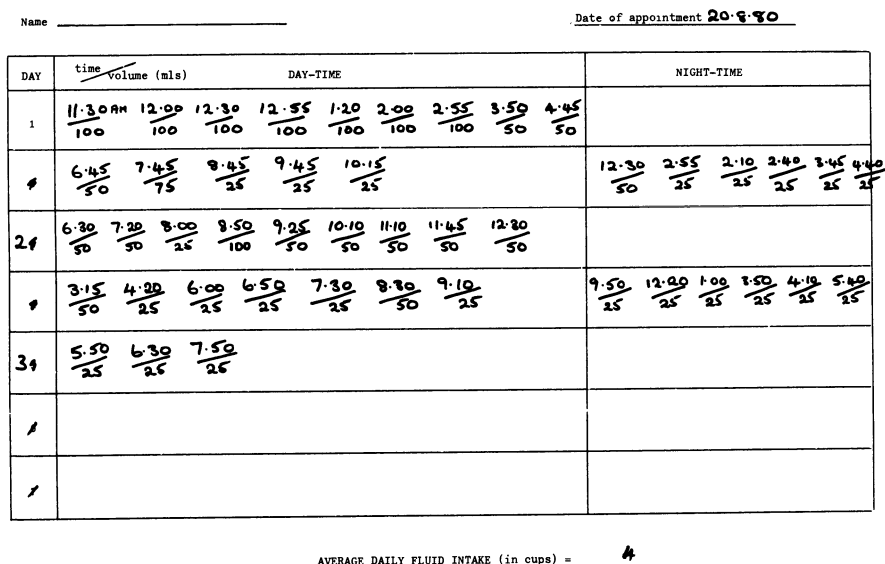 Name
Date of appointment 20·8·80
DAY time/volume (mls) DAY-TIME NIGHT-TIME
1 11·30AM/100 12·00/100 12·30/100 12·55/100 1·20/100 2·00/100 2·55/100 3·50/50 4·45/50
6·45/50 7·45/75 8·45/25 9·45/25 10·15/25 12·30/50 2·55/25 2·10/25 2·40/25 3·45/25 4·40/25
2 6·30/50 7·20/50 8·00/25 8·50/100 9·25/50 10·10/50 11·10/50 11·45/50 12·30/50
3·15/50 4·20/25 6·00/25 6·50/25 7·30/25 8·30/50 9·10/25 9·50/25 12·20/25 1·00/25 3·50/25 4·10/25 5·40/25
3 5·50/25 6·30/25 7·50/25
AVERAGE DAILY FLUID INTAKE (in cups) = 4